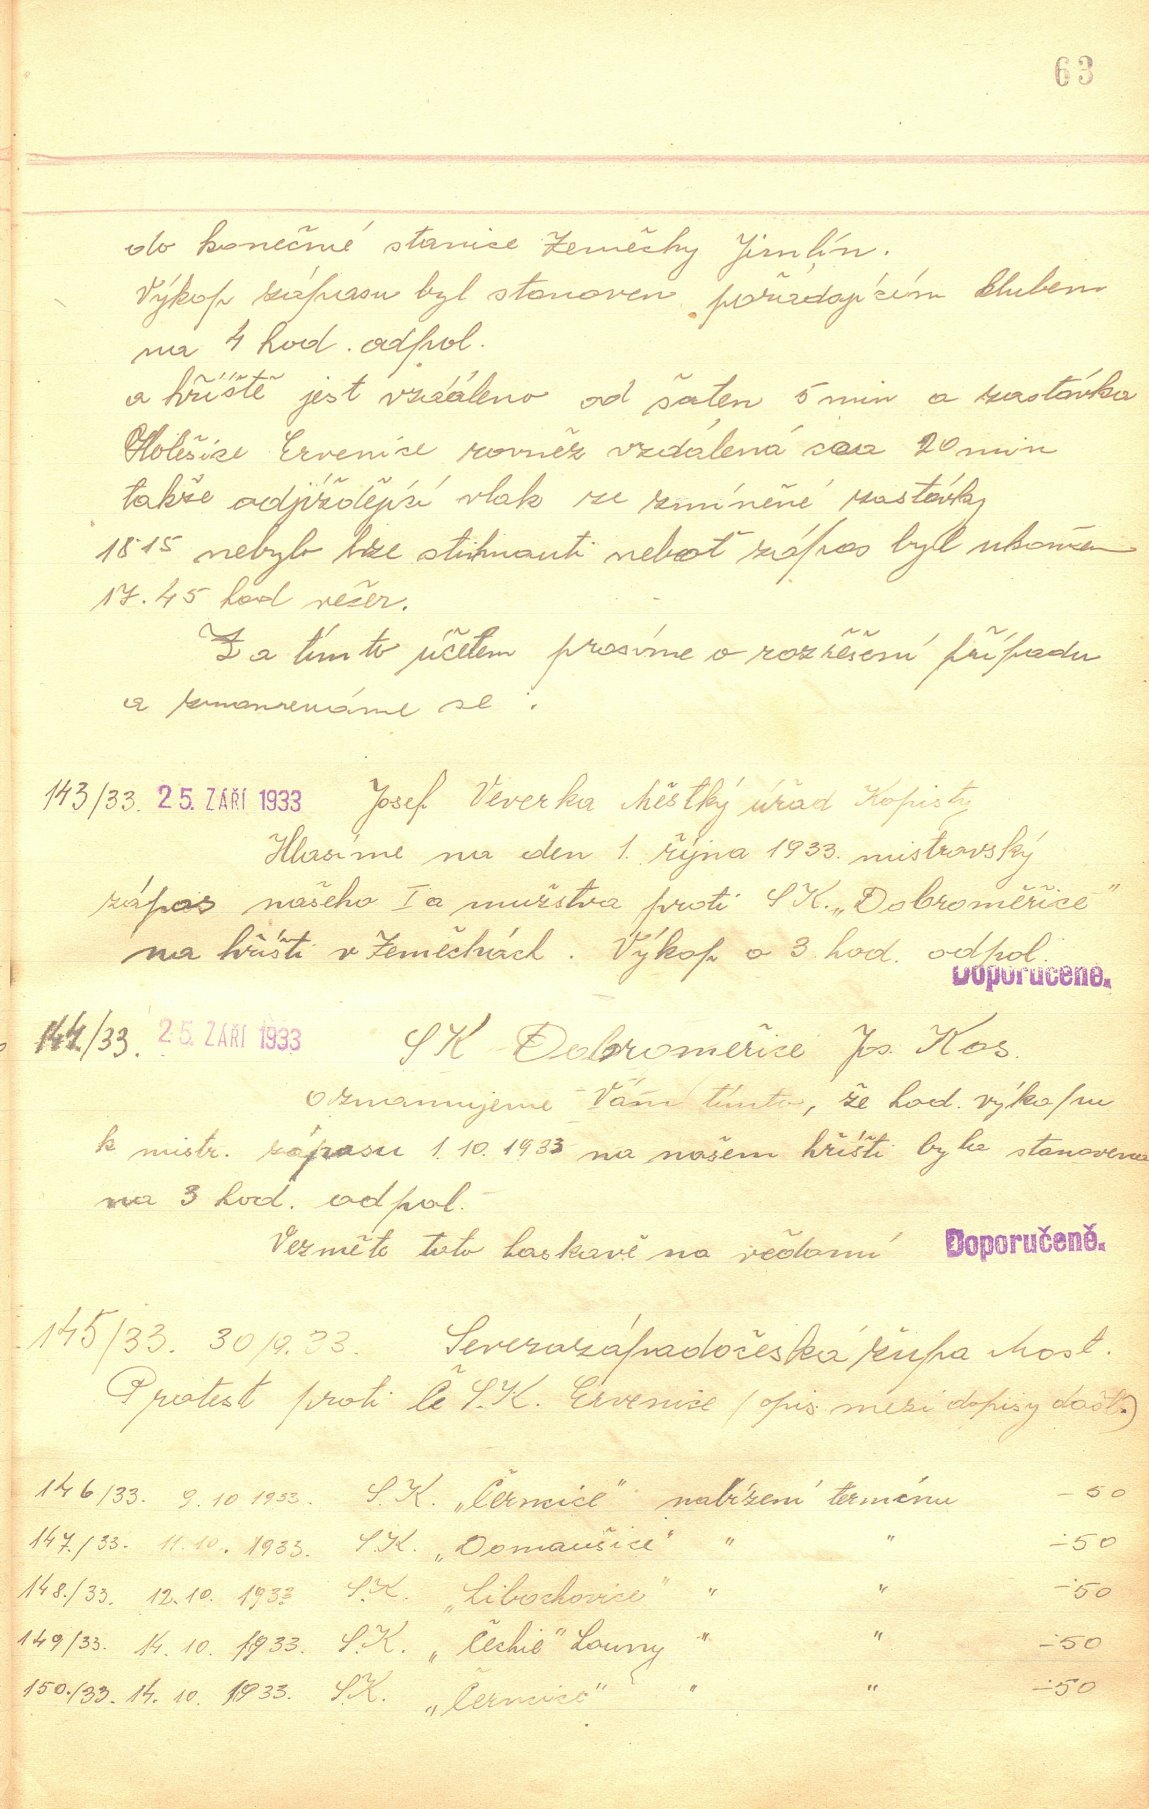 63
do konečné stanice Zeměchy Jimlín.
Výkop zápasu byl stanoven pořádajícím klubem
na 4 hod. odpol.
a hřiště jest vzdáleno od šaten 5 min a zastávka
Holešice Ervenice rovněž vzdálená cca 20 min
takže odjíždějící vlak ze zmíněné zastávky
18 15 nebylo lze stihnouti neboť zápas byl ukončen
17.45 hod večer.
Za tímto účelem prosíme o rozřešení případu
a znamenáme se :
143/33. 25. ZÁŘÍ 1933 Josef Veverka Městký úřad Kopisty
Hlasíme na den 1. října 1933. mistrovský
zápas našeho I a mužstva proti S.K. „Dobroměřice"
na hřišti v Zeměchách. Výkop o 3 hod. odpol.
Doporučeně.
144./33. 25. ZÁŘÍ 1933 SK Dobroměřice Jos. Kos.
oznamujeme Vám tímto, že hod. výkopu
k mistr. zápasu 1.10.1933 na našem hřišti byla stanovena
na 3 hod. odpol.
Vezměte toto laskavě na vědomí Doporučeně.
145/33. 30/9.33. Severozápadočeská župa Most.
Protest proti Č S.K. Ervenice (opis mezi dopisy došl.)
146/33. 9.10 1933. S.K. „Černcice" nabízení termínu -50
147./33. 11.10. 1933. S.K. „Domaušice" " " -50
148./33. 12.10. 1933 S.K. „Libochovice" " " -50
149/33. 14.10. 1933. S.K. „Čechie" Louny " " -50
150./33. 14.10. 1933. S.K. „Černcice" " " -50